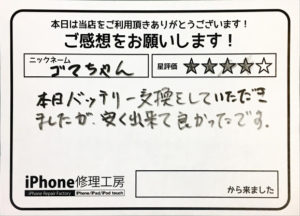 本日は当店をご利用頂きありがとうございます!
ご感想をお願いします!
ニックネーム
ゴマちゃん
星評価 ★★★★☆
本日バッテリー交換をしていただき
ましたが、安く出来て良かったです。
iPhone修理工房
iPhone Repair Factory iPhone/iPad/iPod touch
から来ました